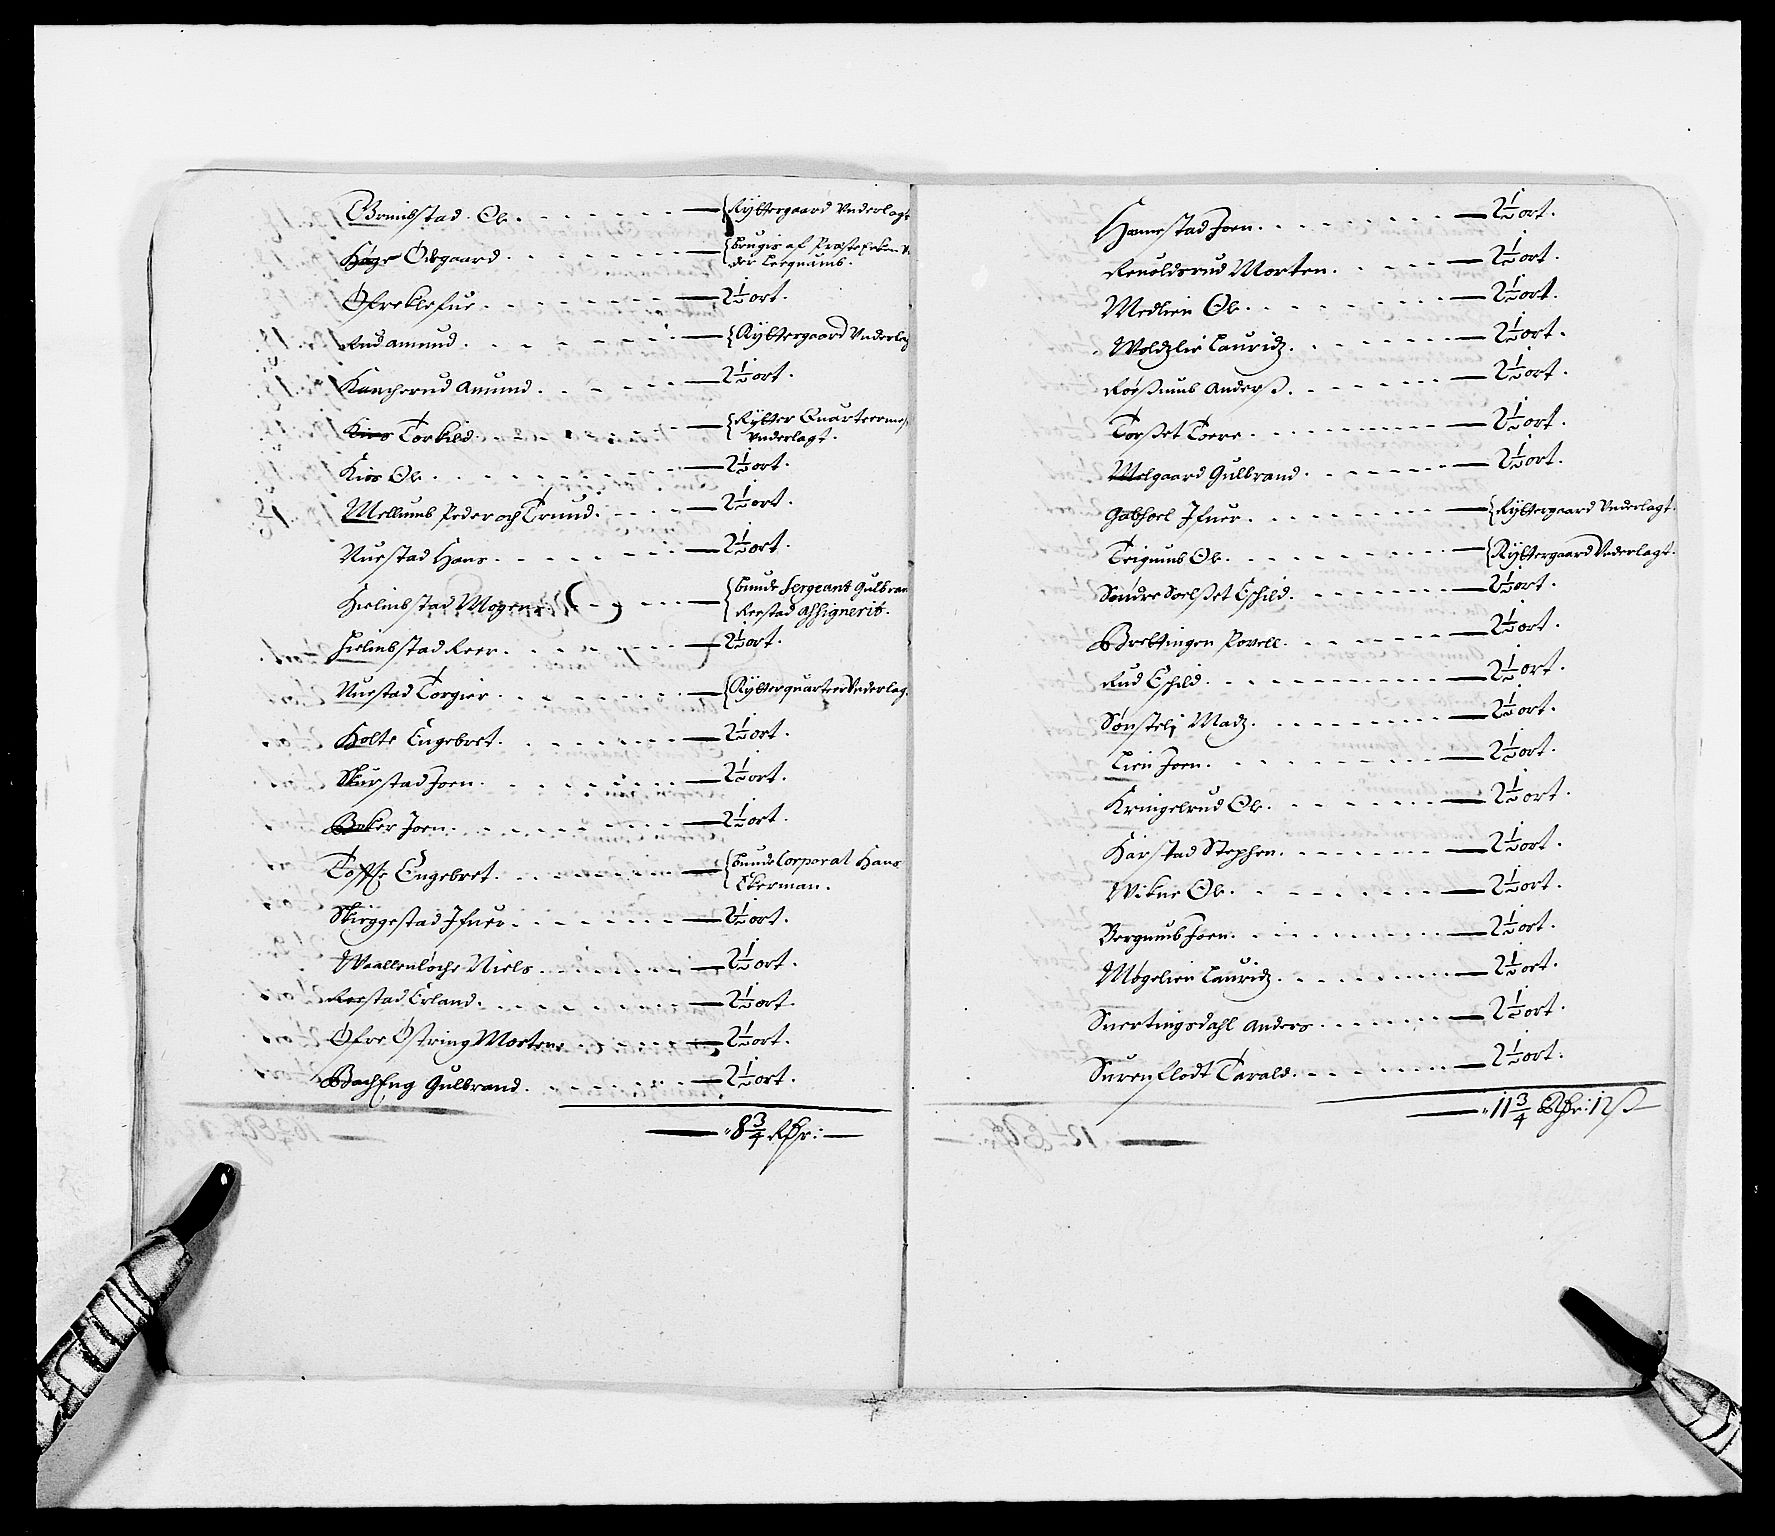 Brunbstad Ole. {Rÿttergaard Vnderlagt
Høge Odegaard {brugis af Præste Encken V
der Leegnumb.
Ofre Klefue 2½ ort.
Rud Amund {Rÿttergaard Vnderlag
Kancherud Amund 2½ ort.
Kios Torkild {Rÿtter Quarteermes
Vnderlagt.
Kios Ole 2½ ort.
Mellumb Peder och Trund 2½ ort.
Nuestad Hans 2½ ort.
Hielmbstad Mogens {bunde Sergeant Gulbran
Reestad Assignerit.
Hielmbstad Reer 2½ ort.
Nuestad Torgier {Rÿtterquarteer Vnderlag
Holte Engebret 2½ ort.
Skurstad Joen 2½ ort.
Boker Joen 2½ ort.
Toffte Engebret {bunde Corporal Hans
Ekerman.
Skieggestad Ifuer 2½ ort.
Waallenløche Niels 2½ ort.
Reestad Erland 2½ ort.
Ofre Østring Morten 2½ ort.
Bach Eng Gulbrand 2½ ort.
8¾ Rdr:
Hamestad Joen 2½ ort.
Renoldsrud Morten 2½ ort.
Medlien Ole 2½ ort.
Woldzlie Lauridz 2½ ort.
Røeßumb Anderß 2½ ort.
Torßet Toere 2½ ort.
Melgaard Gulbrand 2½ ort.
Gabhoel Ifuer {Rÿttergaard Vnderlagt.
Teigumb Ole {Rÿttergaard Vnderlagt.
Søndre Soelßet Eschild 2½ ort.
Brettingen Povell 2½ ort.
Rud Eschild 2½ ort.
Sønstelj Madz 2½ ort.
Lien Joen 2½ ort.
Kringelrud Ole 2½ ort.
Harstad Stephen 2½ ort.
Wiknie Ole 2½ ort.
Bergumb Joen 2½ ort.
Møgelien Lauridz 2½ ort.
Snertingsdahl Anders 2½ ort.
Suren Flodt Tarald 2½ ort.
11¾ Rdr: 12 ß